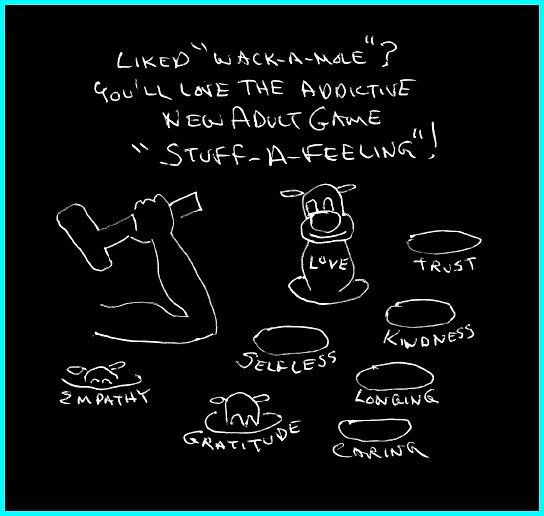 LIKED "WACK-A-MOLE"?
YOU'LL LOVE THE ADDICTIVE
NEW ADULT GAME
"STUFF-A-FEELING"!
LOVE
TRUST
KINDNESS
SELFLESS
EMPATHY
LONGING
GRATITUDE
CARING